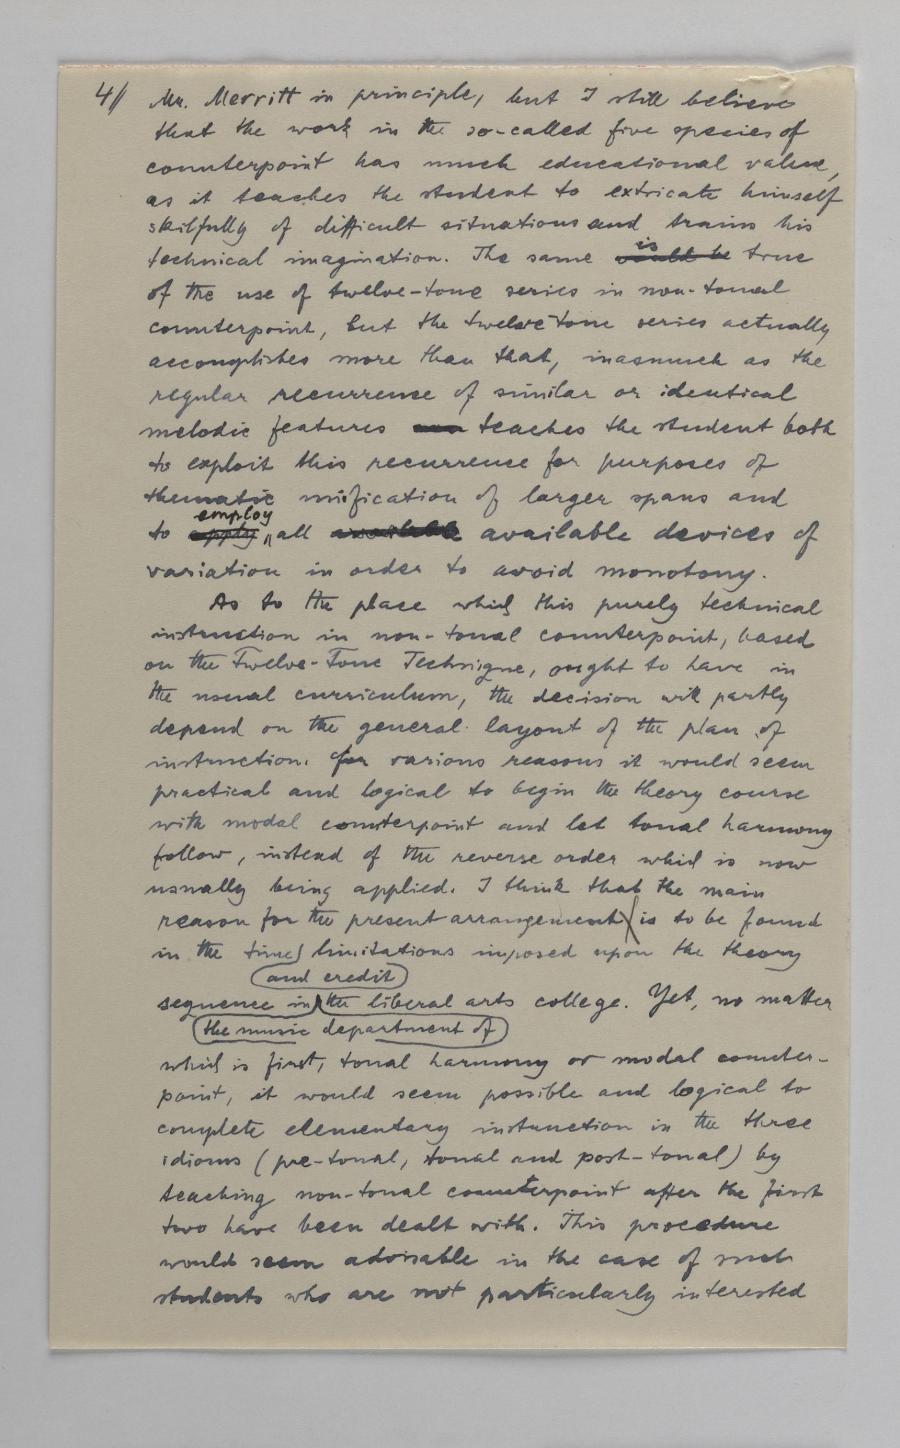 4// Mr. Merritt in principle, but I still believe
that the work in the so-called five species of
counterpoint has much educational value,
as it teaches the student to extricate himself
skilfully of difficult situations and trains his
is
technical imagination. The same would be true
of the use of twelve-tone series in non-tonal
counterpoint, but the twelve-tone series actually
accomplishes more than that, inasmuch as the
regular recurrence of similar or identical
melodic features teaches the student both
to exploit this recurrence for purposes of
thematic unification of larger spans and
employ
to apply all available available devices of
variation in order to avoid monotony.
As to the place which this purely technical
instruction in non-tonal counterpoint, based
on the Twelve-Tone Technique, ought to have in
the usual curriculum, the decision will partly
depend on the general layout of the plan of
instruction. For various reasons it would seem
practical and logical to begin the theory course
with modal counterpoint and let tonal harmony
follow, instead of the reverse order which is now
usually being applied. I think that the main
reason for the present arrangement is to be found
in the time limitations imposed upon the theory
and credit
sequence in the liberal arts college. Yet, no matter
the music department of
which is first, tonal harmony or modal counter-
point, it would seem possible and logical to
complete elementary instruction in the three
idioms (pre-tonal, tonal and post-tonal) by
teaching non-tonal counterpoint after the first
two have been dealt with. This procedure
would seem advisable in the case of such
students who are not particularly interested